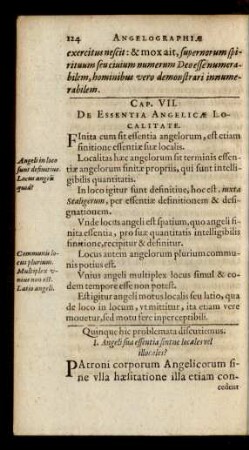 124 ANGELOGRAPHIÆ
exercitus nescit: & mox ait, supernorum spi-
rituum seu civium numerum Deo esse numera-
bilem, hominibus vero demonstrari innume-
rabilem.
CAP. VII.
DE ESSENTIA ANGELICÆ LO-
CALITATE.
FInita cum sit essentia angelorum, est etiam
finitione essentiæ suæ localis.
Angeli in loco
sunt definitive.
Locus angeli
quid?
Localitas hæc angelorum sit terminis essen-
tiæ angelorum finitæ propriis, qui sunt intelli-
gibilis quantitatis.
In loco igitur sunt definitive, hoc est, juxta
Scaligerum, per essentiæ definitionem & desi-
gnationem.
Vnde locus angeli est spatium, quo angeli fi-
nita essentia, pro suæ quantitatis intelligibilis
finitione, recipitur & definitur.
Communis lo-
cus plurium.
Multiplex v-
nius non est.
Latio angeli.
Locus autem angelorum plurium commu-
nis potius est.
Vnius angeli multiplex locus simul & eo-
dem tempore esse non potest.
Est igitur angeli motus localis seu latio, qua
de loco in locum, vt mittitur, ita etiam vere
movetur, sed motu fere inperceptibili.
Quinque hic problemata discutiemus.
1. Angeli sua essentia sintne locales vel
illocales?
PAtroni corporum Angelicorum si-
ne vlla hæsitatione illa etiam con-
cedunt